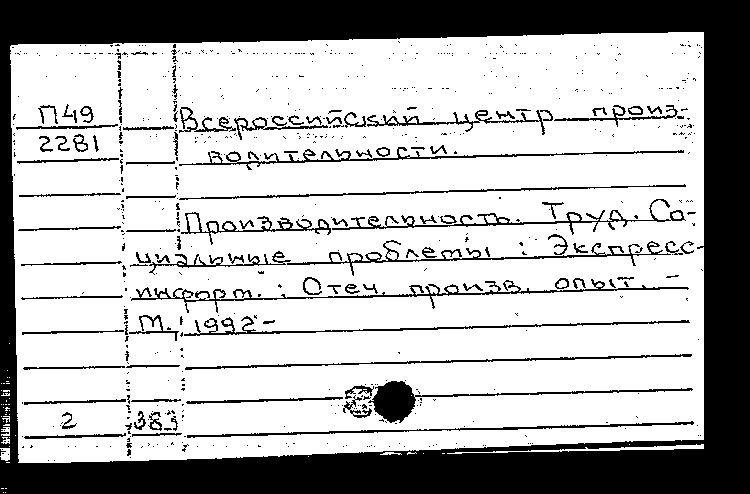 П49 Всероссийский центр произ-
2281 водительности.
Производительность. Труд. Со-
циальные проблемы : Экспресс-
информ. : Отеч. произв. опыт. -
М., 1992 -
2 383